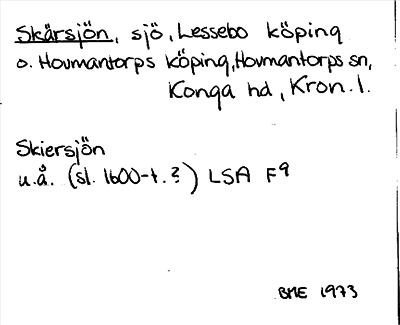 Skärsjön, sjö, Lessebo köping
o. Hovmantorps köping, Hovmantorps sn,
Konga hd, Kron. l.
Skiersjön
u.å. (sl. 1600-t.?) LSA F9
BME 1973